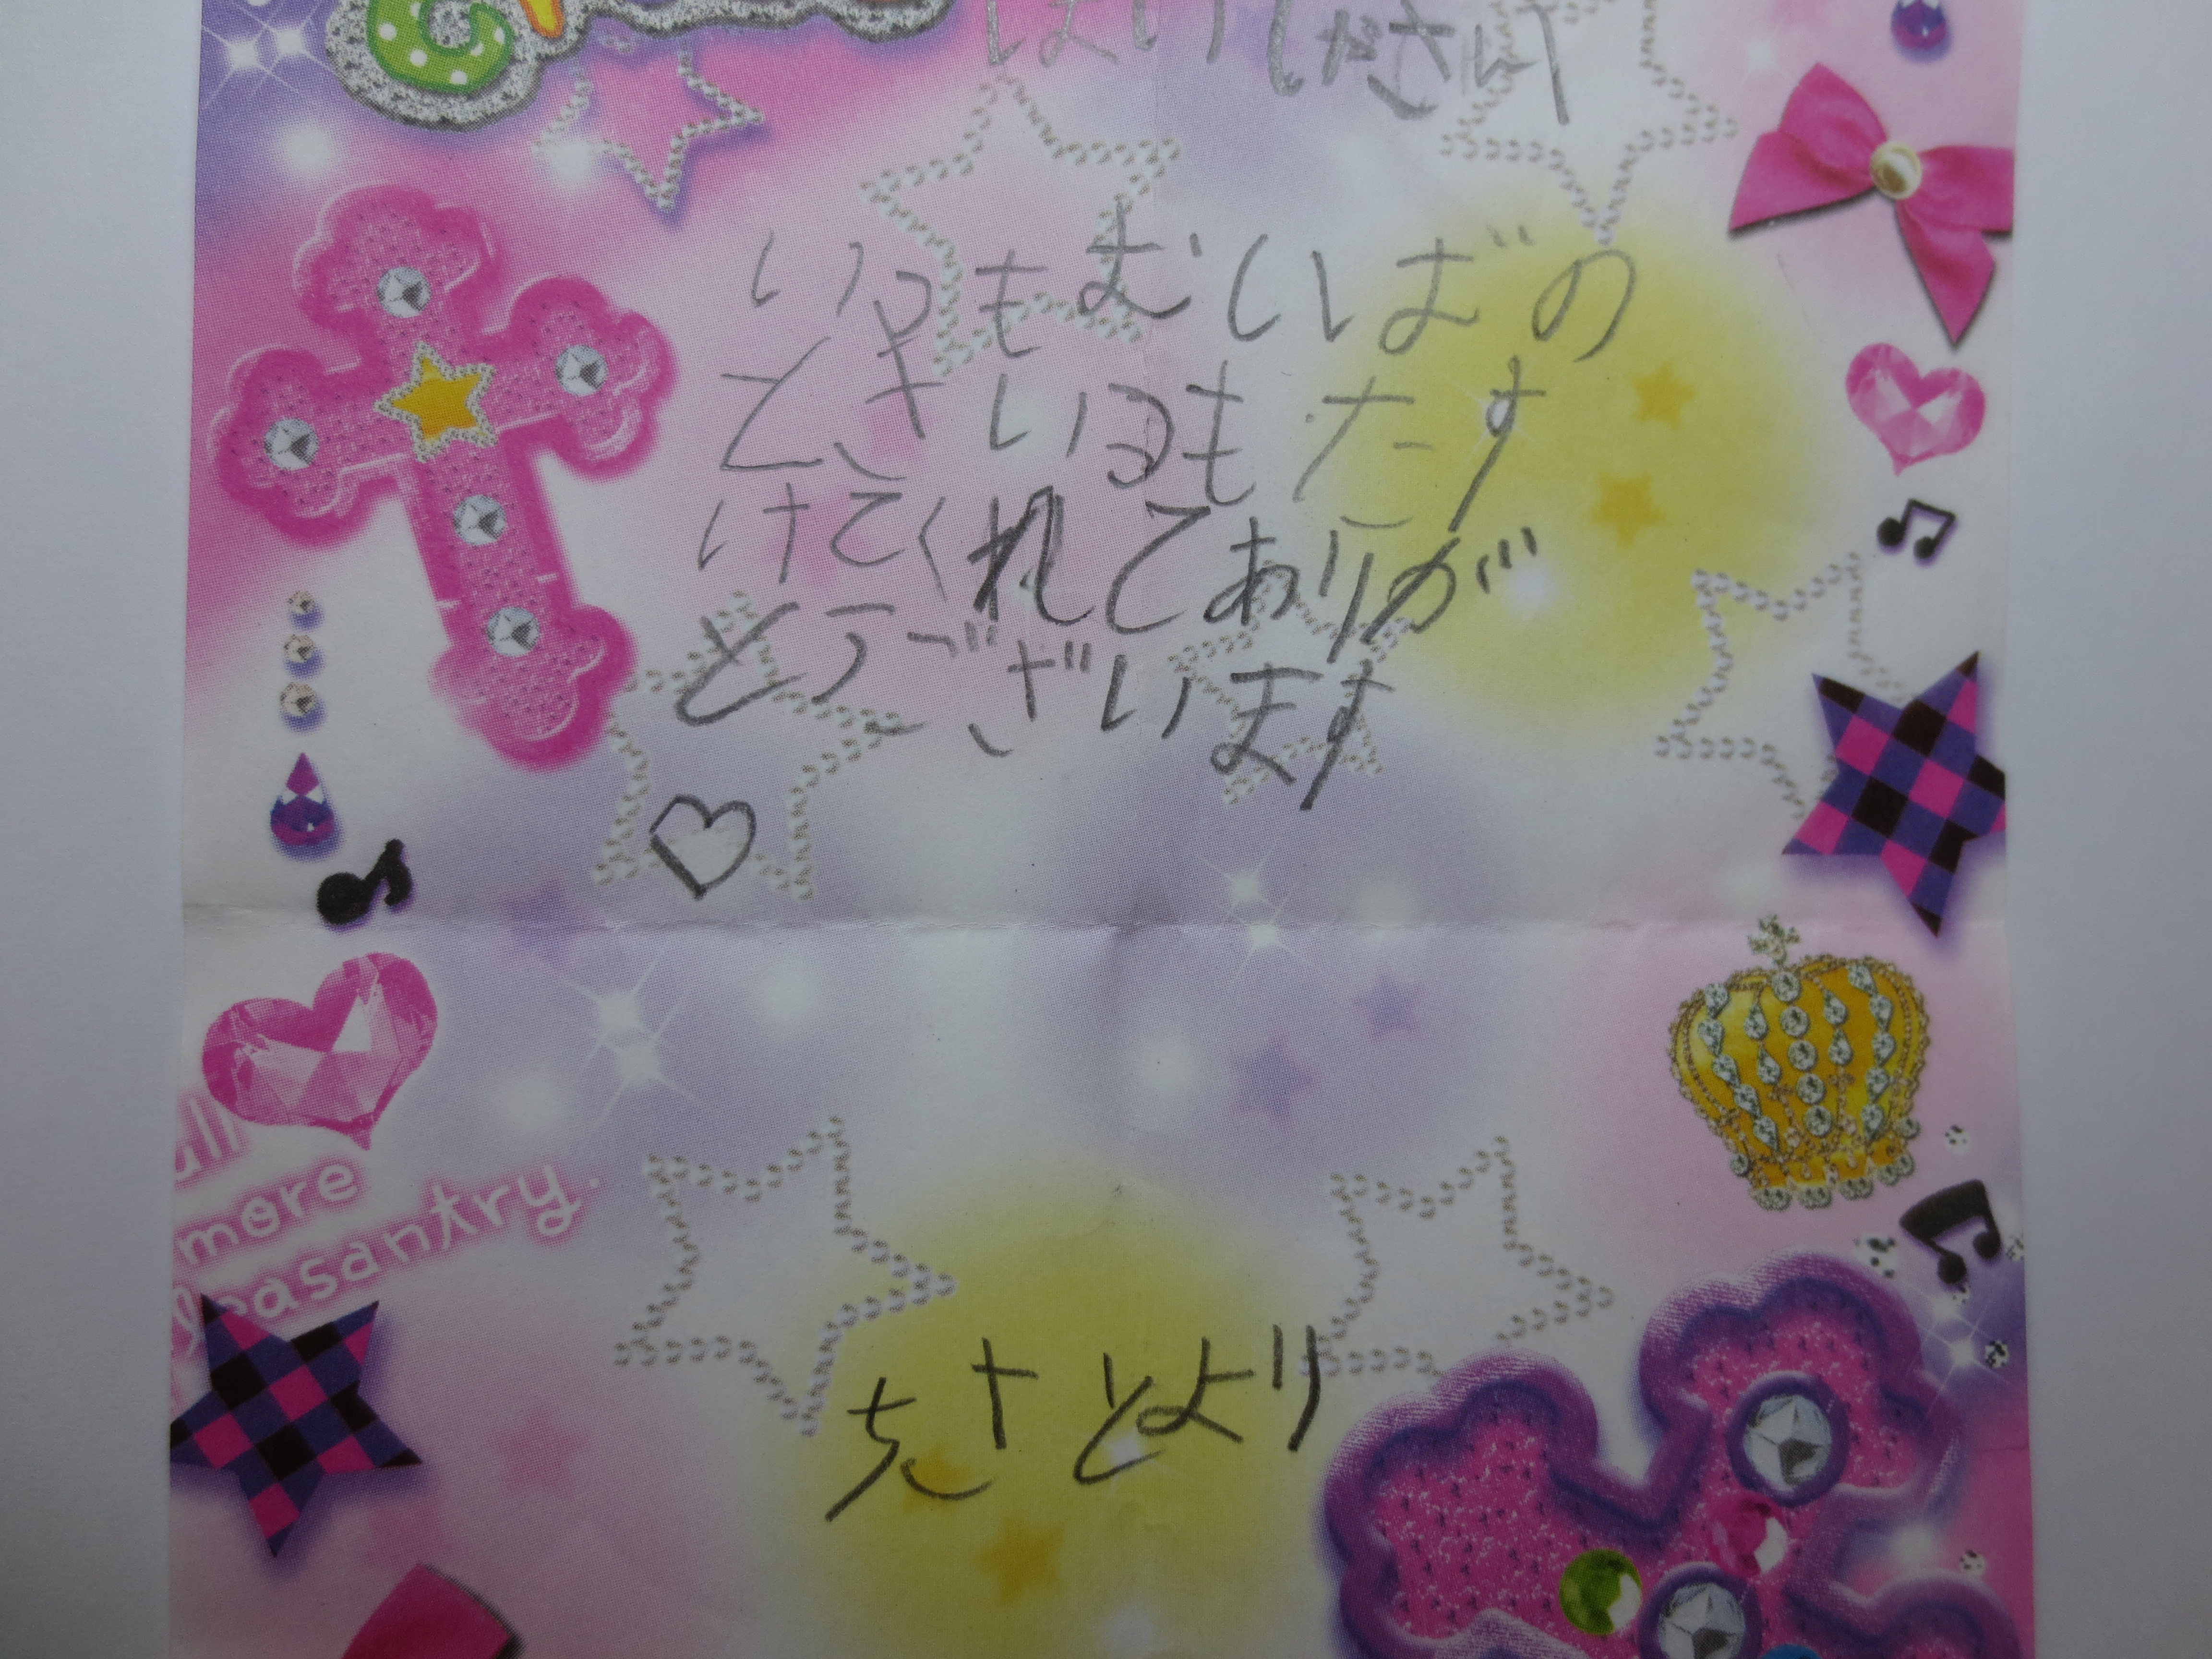 いつもむしばの
ときいつもたす
けてくれてありが
とうございます
♡
ull
more
pleasantry.
ちさとより